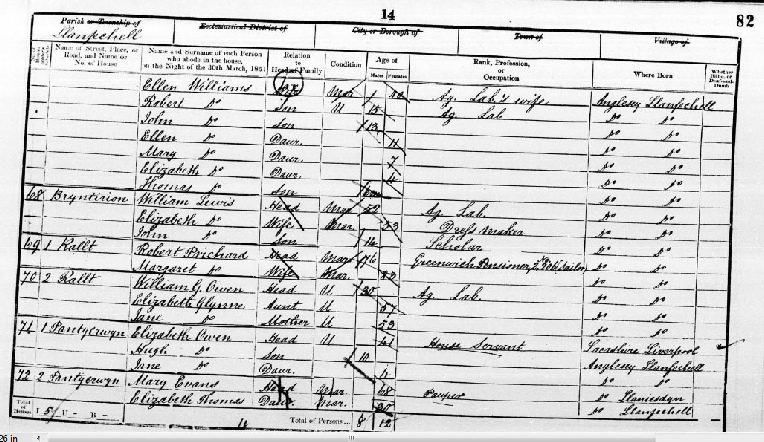 14
82
Parish or Township of Ecclesiastical District of City or Borough of Town of Village of
Llanfechell
Name of Street, Place, or Road, and Name or No. of House
Name and Surname of each Person who abode in the house, on the Night of the 30th March, 1851
Relation to Head of Family
Condition
Age of
Males Females
Rank, Profession, or Occupation
Where Born
Whether Blind, or Deaf-and-Dumb
Ellen Williams Wife Mar Ag. Lab's wife Anglesey Llanfechell
Robert Do Son U 15 Ag Lab Do Do
John Do Son 13 Do Do
Ellen Do Daur. 11 Do Do
Mary Do Daur. 7 Do Do
Elizabeth Do Daur. 4 Do Do
Thomas Do Son Do Do
68 Bryntirion William Lewis Head Mar 52 Ag. Lab. Do Do
Elizabeth Do Wife Mar. 53 Dress Maker Do Do
John Do Son 14 Scholar Do Do
69 1 Rallt Robert Prichard Head Mar 76 Greenwich Pensioner Do Do
Margaret Do Wife Mar. Do Do
70 2 Rallt William G. Owen Head U 30 Ag. Lab. Do Do
Elizabeth Glynne Aunt U 57 Do Do
Jane Do Mother U 53 Do Do
71 1 Pantycrwyn Elizabeth Owen Head U 41 House Servant Liverpool
Hugh Do Son 10 Anglesey Llanfechell
Jane Do Daur. 11 Do Do
72 2 Pantycrwyn Mary Evans Head 68 Pauper Do
Elizabeth Thomas Daur. Mar. Do Llanfechell
Total of Houses I 5 U – B – Total of Persons... 8 12
26 in